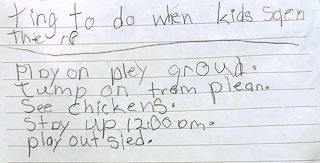 ting to do when kids spen
the ni
ploy on pley groud.
Jump on trem plean.
See chickens.
Stoy up 12:00 om.
play out sied.